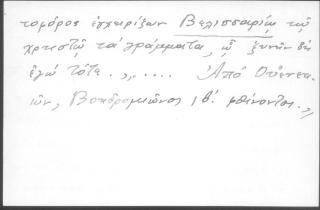 τομόρος ἐγχειρίζων Βελισσαρίῳ τῷ
χρηστῷ τὰ γράμματα, ᾧ ξυνῆν δὴ
ἐγὼ τότε . , . . . . Ἀπὸ Οὐενετ
ιῶν, Βοηδρομιῶνος, β΄. φθίνοντος. ,